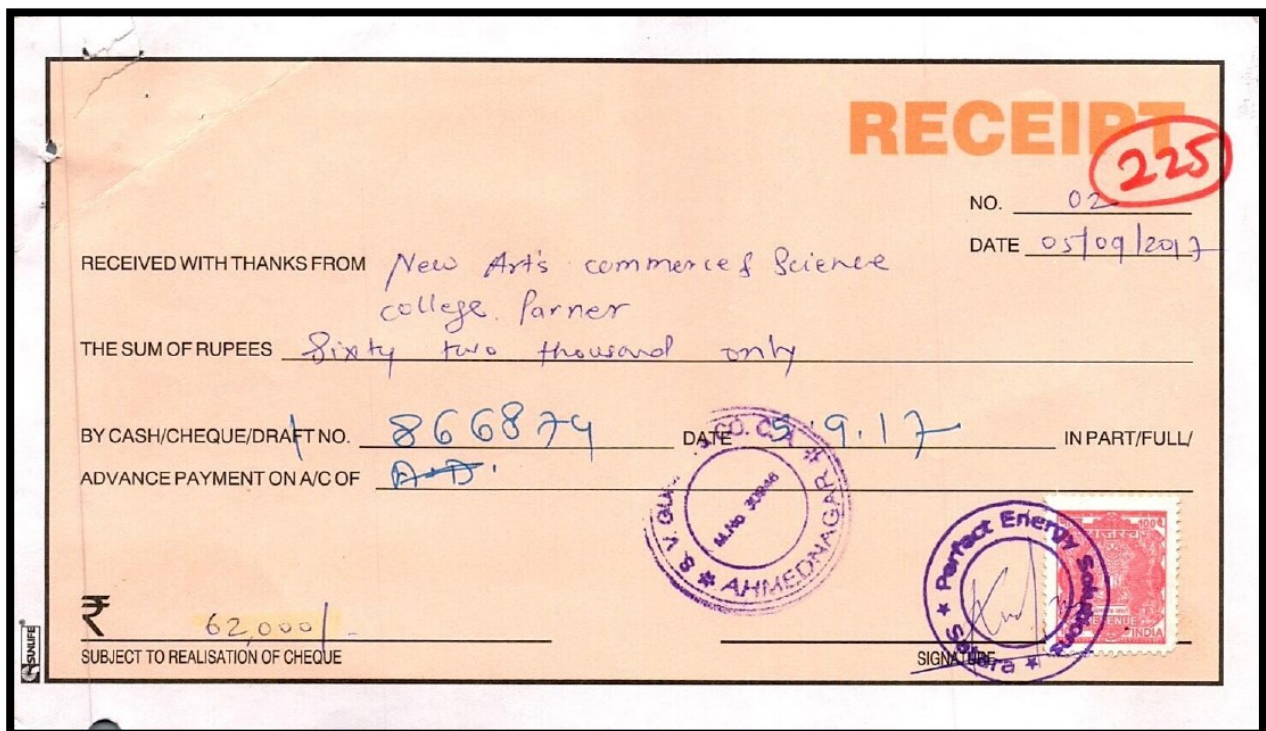 RECEIPT
225
NO. 02
DATE 05/09/2017
RECEIVED WITH THANKS FROM New Art's commerce & Science
college. Parner
THE SUM OF RUPEES Sixty two thousand only
BY CASH/CHEQUE/DRAFT NO. 866874 DATE 5.9.17 IN PART/FULL/
ADVANCE PAYMENT ON A/C OF A.D.
S. V. CO. C.A * AHMEDNAGAR *
M.No
* Perfect Energy Solutions * Satara
100
REVENUE
INDIA
₹ 62,000/-
SUBJECT TO REALISATION OF CHEQUE
SIGNATURE
SUNLIFE